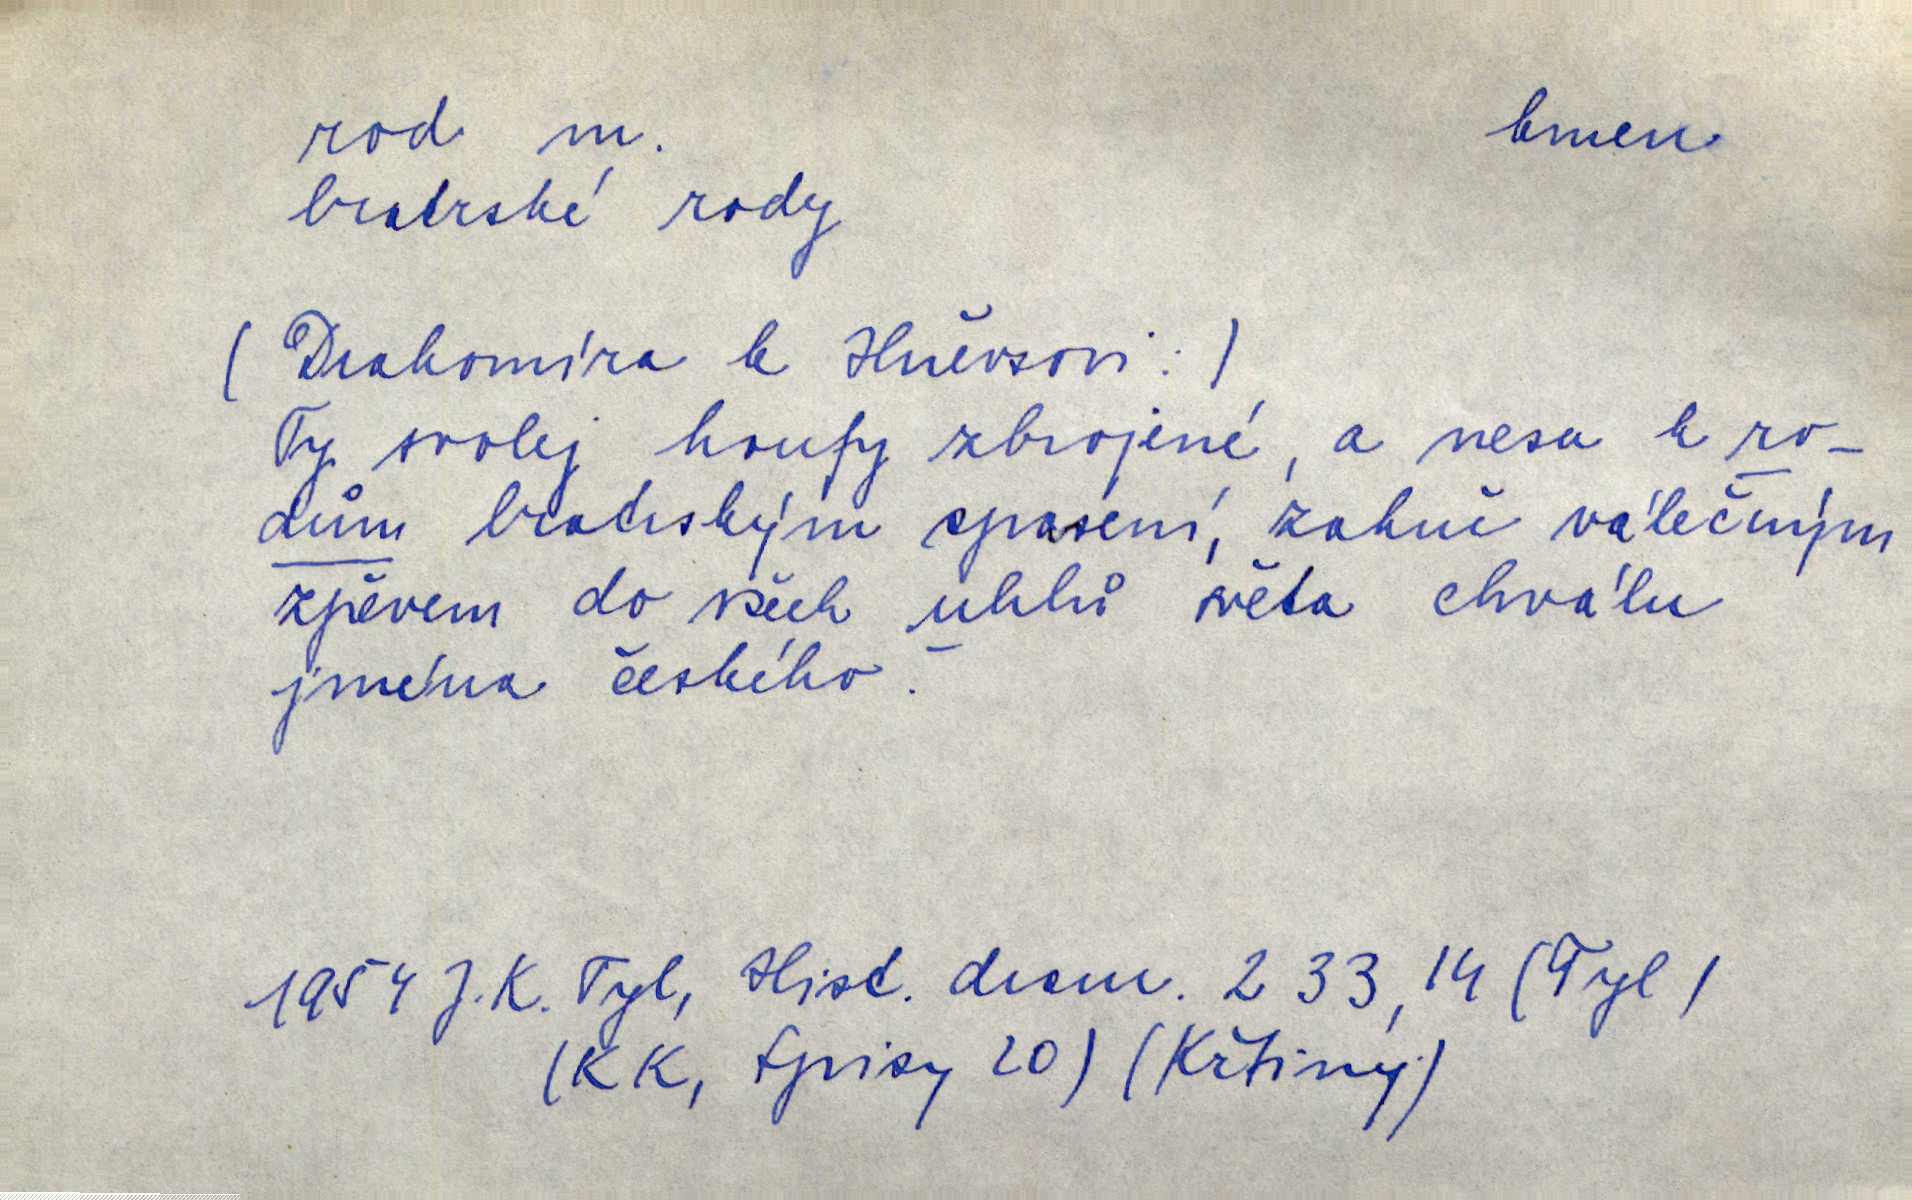 rod m. kmen
bratrské rody
(Drahomíra k Hněvsovi:)
Ty svolej houfy zbrojené, a nesa k ro-
dům bratrským spasení, zahuč válečným
zpěvem do všech uhlů světa chválu
jména českého.
1954 J. K. Tyl, Hist. dram. 2 33, 14 (Tyl)
(KK, Spisy 20) (Křtiny)